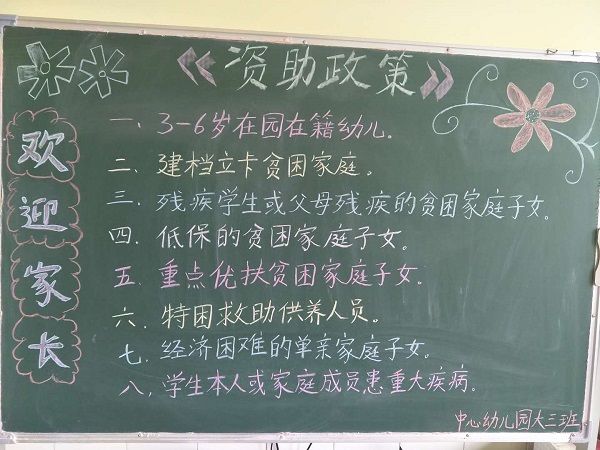 《资助政策》
欢迎家长
一、3-6岁在园在籍幼儿。
二、建档立卡贫困家庭。
三、残疾学生或父母残疾的贫困家庭子女。
四、低保的贫困家庭子女。
五、重点优扶贫困家庭子女。
六、特困救助供养人员。
七、经济困难的单亲家庭子女。
八、学生本人或家庭成员患重大疾病。
中心幼儿园大三班